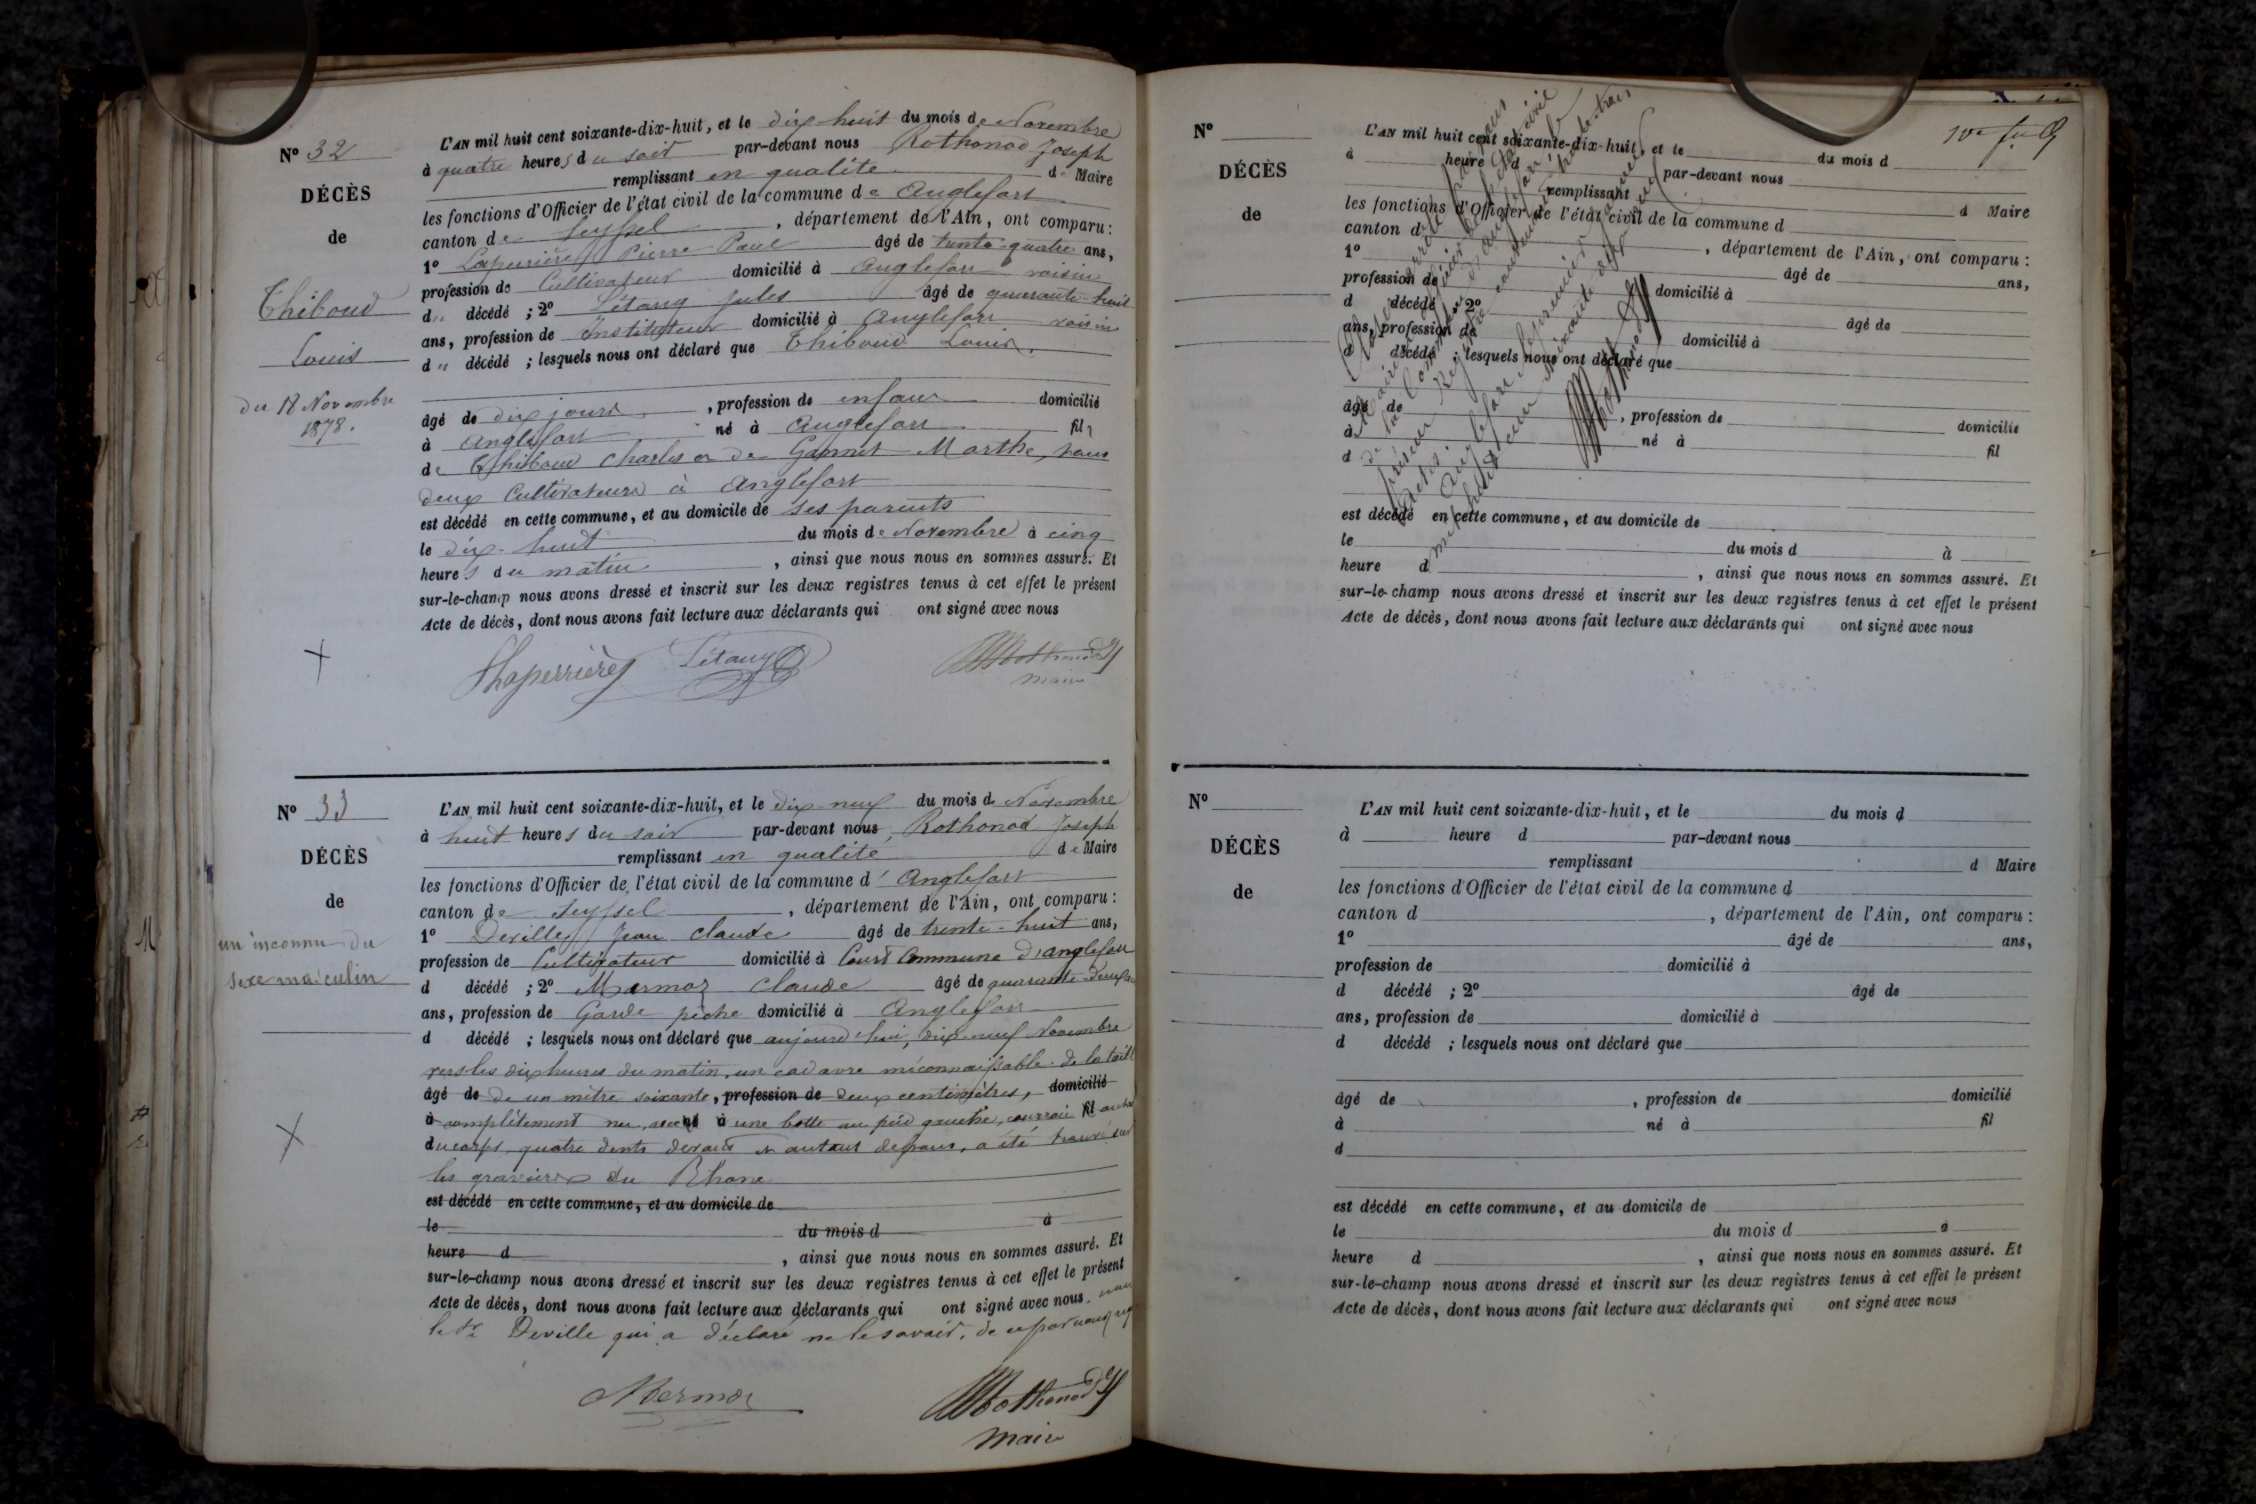 N° 32
DÉCÈS
de
Thiboud
Louis
du 18 Novembre
1878.
L'AN mil huit cent soixante-dix-huit, et le dix huit du mois de Novembre
à quatre heures du soir par-devant nous Rothonod Joseph
remplissant en qualité de Maire
les fonctions d'Officier de l'état civil de la commune de Anglefort
canton de Seyssel, département de l'Ain, ont comparu:
1° Laperrière Pierre Paul âgé de trente quatre ans,
profession de Cultivateur domicilié à Anglefort voisin
d„ décédé; 2° Létang Jules âgé de quarante-huit
ans, profession de Instituteur domicilié à Anglefort voisin
d„ décédé; lesquels nous ont déclaré que Thiboud Louis,
âgé de dix jours, profession de enfant domicilié
à Anglefort né à Anglefort fils
de Thiboud Charles et de Marthe, tous
deux Cultivateurs à Anglefort
est décédé en cette commune, et au domicile de ses parents
le dix-huit du mois de Novembre à cinq
heures du matin, ainsi que nous nous en sommes assuré. Et
sur-le-champ nous avons dressé et inscrit sur les deux registres tenus à cet effet le présent
Acte de décès, dont nous avons fait lecture aux déclarants qui ont signé avec nous
Laperrière Létang Rothonod
Maire
N° 33
DÉCÈS
de
un inconnu du
sexe masculin
L'AN mil huit cent soixante-dix-huit, et le dix-neuf du mois de Novembre
à huit heures du soir par-devant nous Rothonod Joseph
remplissant en qualité de Maire
les fonctions d'Officier de l'état civil de la commune d' Anglefort
canton de Seyssel, département de l'Ain, ont comparu:
1° Deville Jean Claude âgé de trente-huit ans,
profession de Cultivateur domicilié à Commune d'Anglefort
d décédé; 2° Mermoz Claude âgé de quarante-deux
ans, profession de Garde pêche domicilié à Anglefort
d décédé; lesquels nous ont déclaré que aujourd'hui, dix-neuf Novembre
vers les dix heures du matin, un cadavre méconnaissable de la taille
âgé de de un mètre soixante, profession de deux centimètres, domicilié
à complètement nu, né à une botte au pied gauche, courroie fil autour
du corps, quatre dents devant et autant , a été trouvé sur
les gravières du Rhône
est décédé en cette commune, et au domicile de
le du mois d à
heure d, ainsi que nous nous en sommes assuré. Et
sur-le-champ nous avons dressé et inscrit sur les deux registres tenus à cet effet le présent
Acte de décès, dont nous avons fait lecture aux déclarants qui ont signé avec nous.
le Sr Deville qui a déclaré ne le savoir, de ce par nous
Mermoz Rothonod
Maire
N°
DÉCÈS
de
L'AN mil huit cent soixante-dix-huit, et le du mois d
à heure d par-devant nous
remplissant d Maire
les fonctions d'Officier de l'état civil de la commune d
canton d, département de l'Ain, ont comparu:
1° âgé de ans,
profession de domicilié à
d décédé; 2° âgé de
ans, profession de domicilié à
d décédé; lesquels nous ont déclaré que
âgé de, profession de domicilié
à né à fil
d
est décédé en cette commune, et au domicile de
le du mois d à
heure d, ainsi que nous nous en sommes assuré. Et
sur-le-champ nous avons dressé et inscrit sur les deux registres tenus à cet effet le présent
Acte de décès, dont nous avons fait lecture aux déclarants qui ont signé avec nous
Clos et arrêté par nous
Maire Officier de l'état civil
de la Commune d'Anglefort le
présent Registre contenant trente trois
actes.
Anglefort le premier Janvier
mil huit cent soixante dix neuf
Rothonod
N°
DÉCÈS
de
L'AN mil huit cent soixante-dix-huit, et le du mois d
à heure d par-devant nous
remplissant d Maire
les fonctions d'Officier de l'état civil de la commune d
canton d, département de l'Ain, ont comparu:
1° âgé de ans,
profession de domicilié à
d décédé; 2° âgé de
ans, profession de domicilié à
d décédé; lesquels nous ont déclaré que
âgé de, profession de domicilié
à né à fil
d
est décédé en cette commune, et au domicile de
le du mois d à
heure d, ainsi que nous nous en sommes assuré. Et
sur-le-champ nous avons dressé et inscrit sur les deux registres tenus à cet effet le présent
Acte de décès, dont nous avons fait lecture aux déclarants qui ont signé avec nous